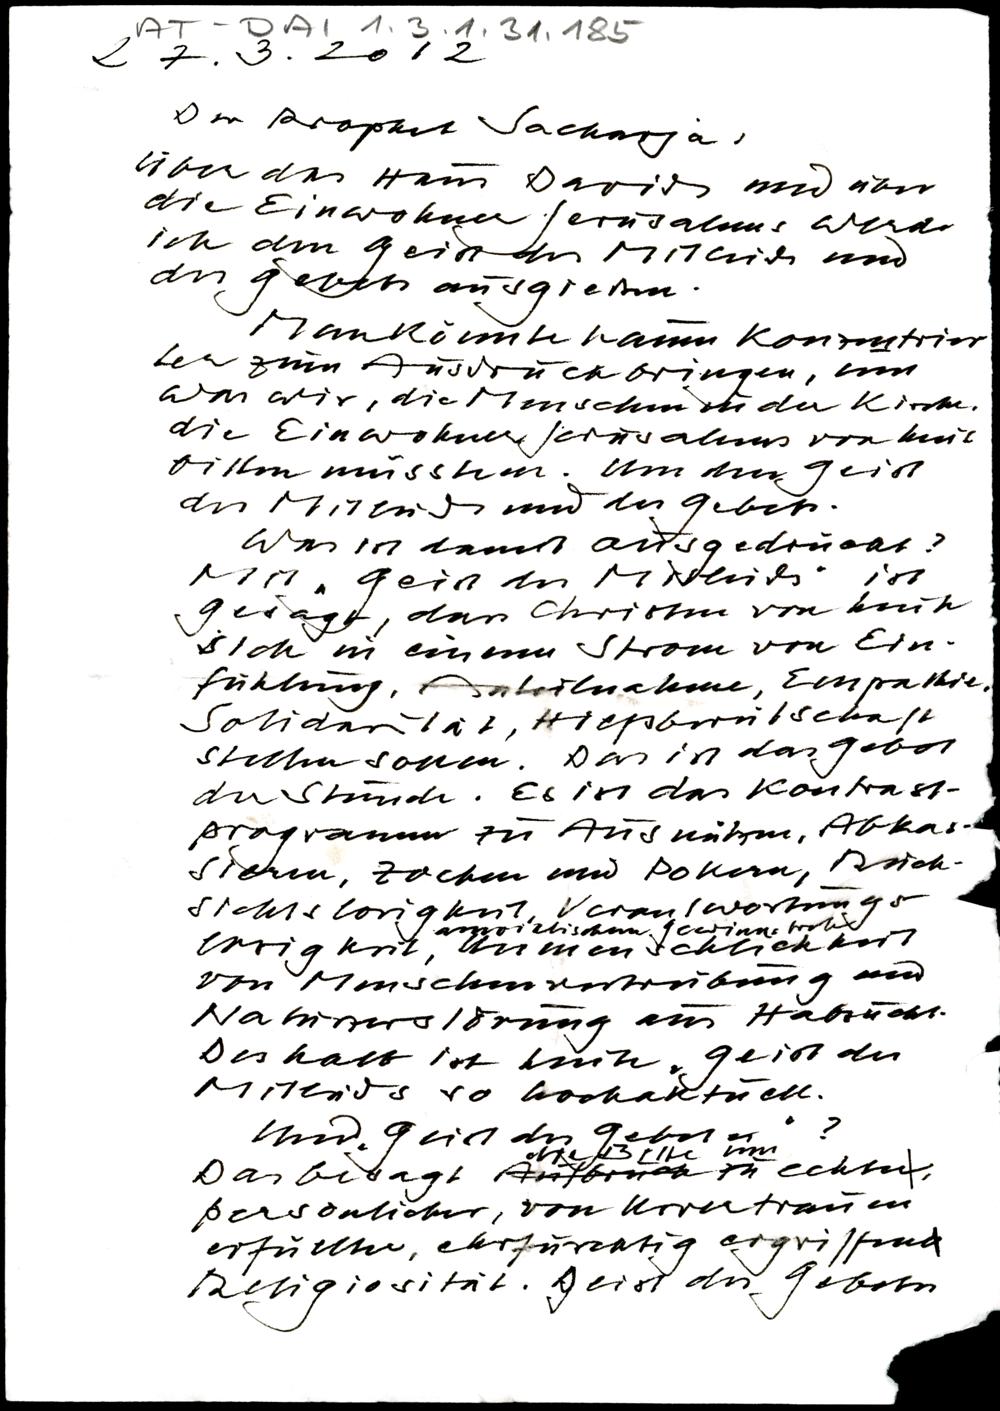 AT-DAI 1.3.1.31.185
27.3.2012
Der Prophet Sacharja:
Über das Haus Davids und über
die Einwohner Jerusalems werde
ich den Geist des Mitleids und
des Gebets ausgießen.
Man könnte kaum konzentrier
ter zum Ausdruck bringen, um
was wir, die Menschen in der Kirche,
die Einwohner Jerusalems von heute
bitten müssten. Um den Geist
des Mitleids und des Gebets.
Was ist damit ausgedrückt?
Mit „Geist des Mitleids" ist
gesagt, dass Christen von heute
sich in einem Strom von Ein-
fühlung, Anteilnahme, Empathie,
Solidarität, Hilfsbereitschaft
stellen sollen. Das ist das Gebot
der Stunde. Es ist das Kontrast-
programm zu Ausnützen, Abkas-
sieren, Zocken und Pokern, Rück-
sichtslosigkeit, Verantwortungs
losigkeit, amoralischem Gewinnstreben
Unmenschlichkeit
von Menschenvertreibung und
Naturzerstörung aus Habsucht.
Deshalb ist heute „Geist des
Mitleids so hochaktuell.
Und „Geist des Gebetes"?
die Bitte um
Das besagt Aufbruch zu echter,
persönlicher, von Urvertrauen
erfüllter, ehrfürchtig ergriffener
Religiosität. Geist des Gebetes